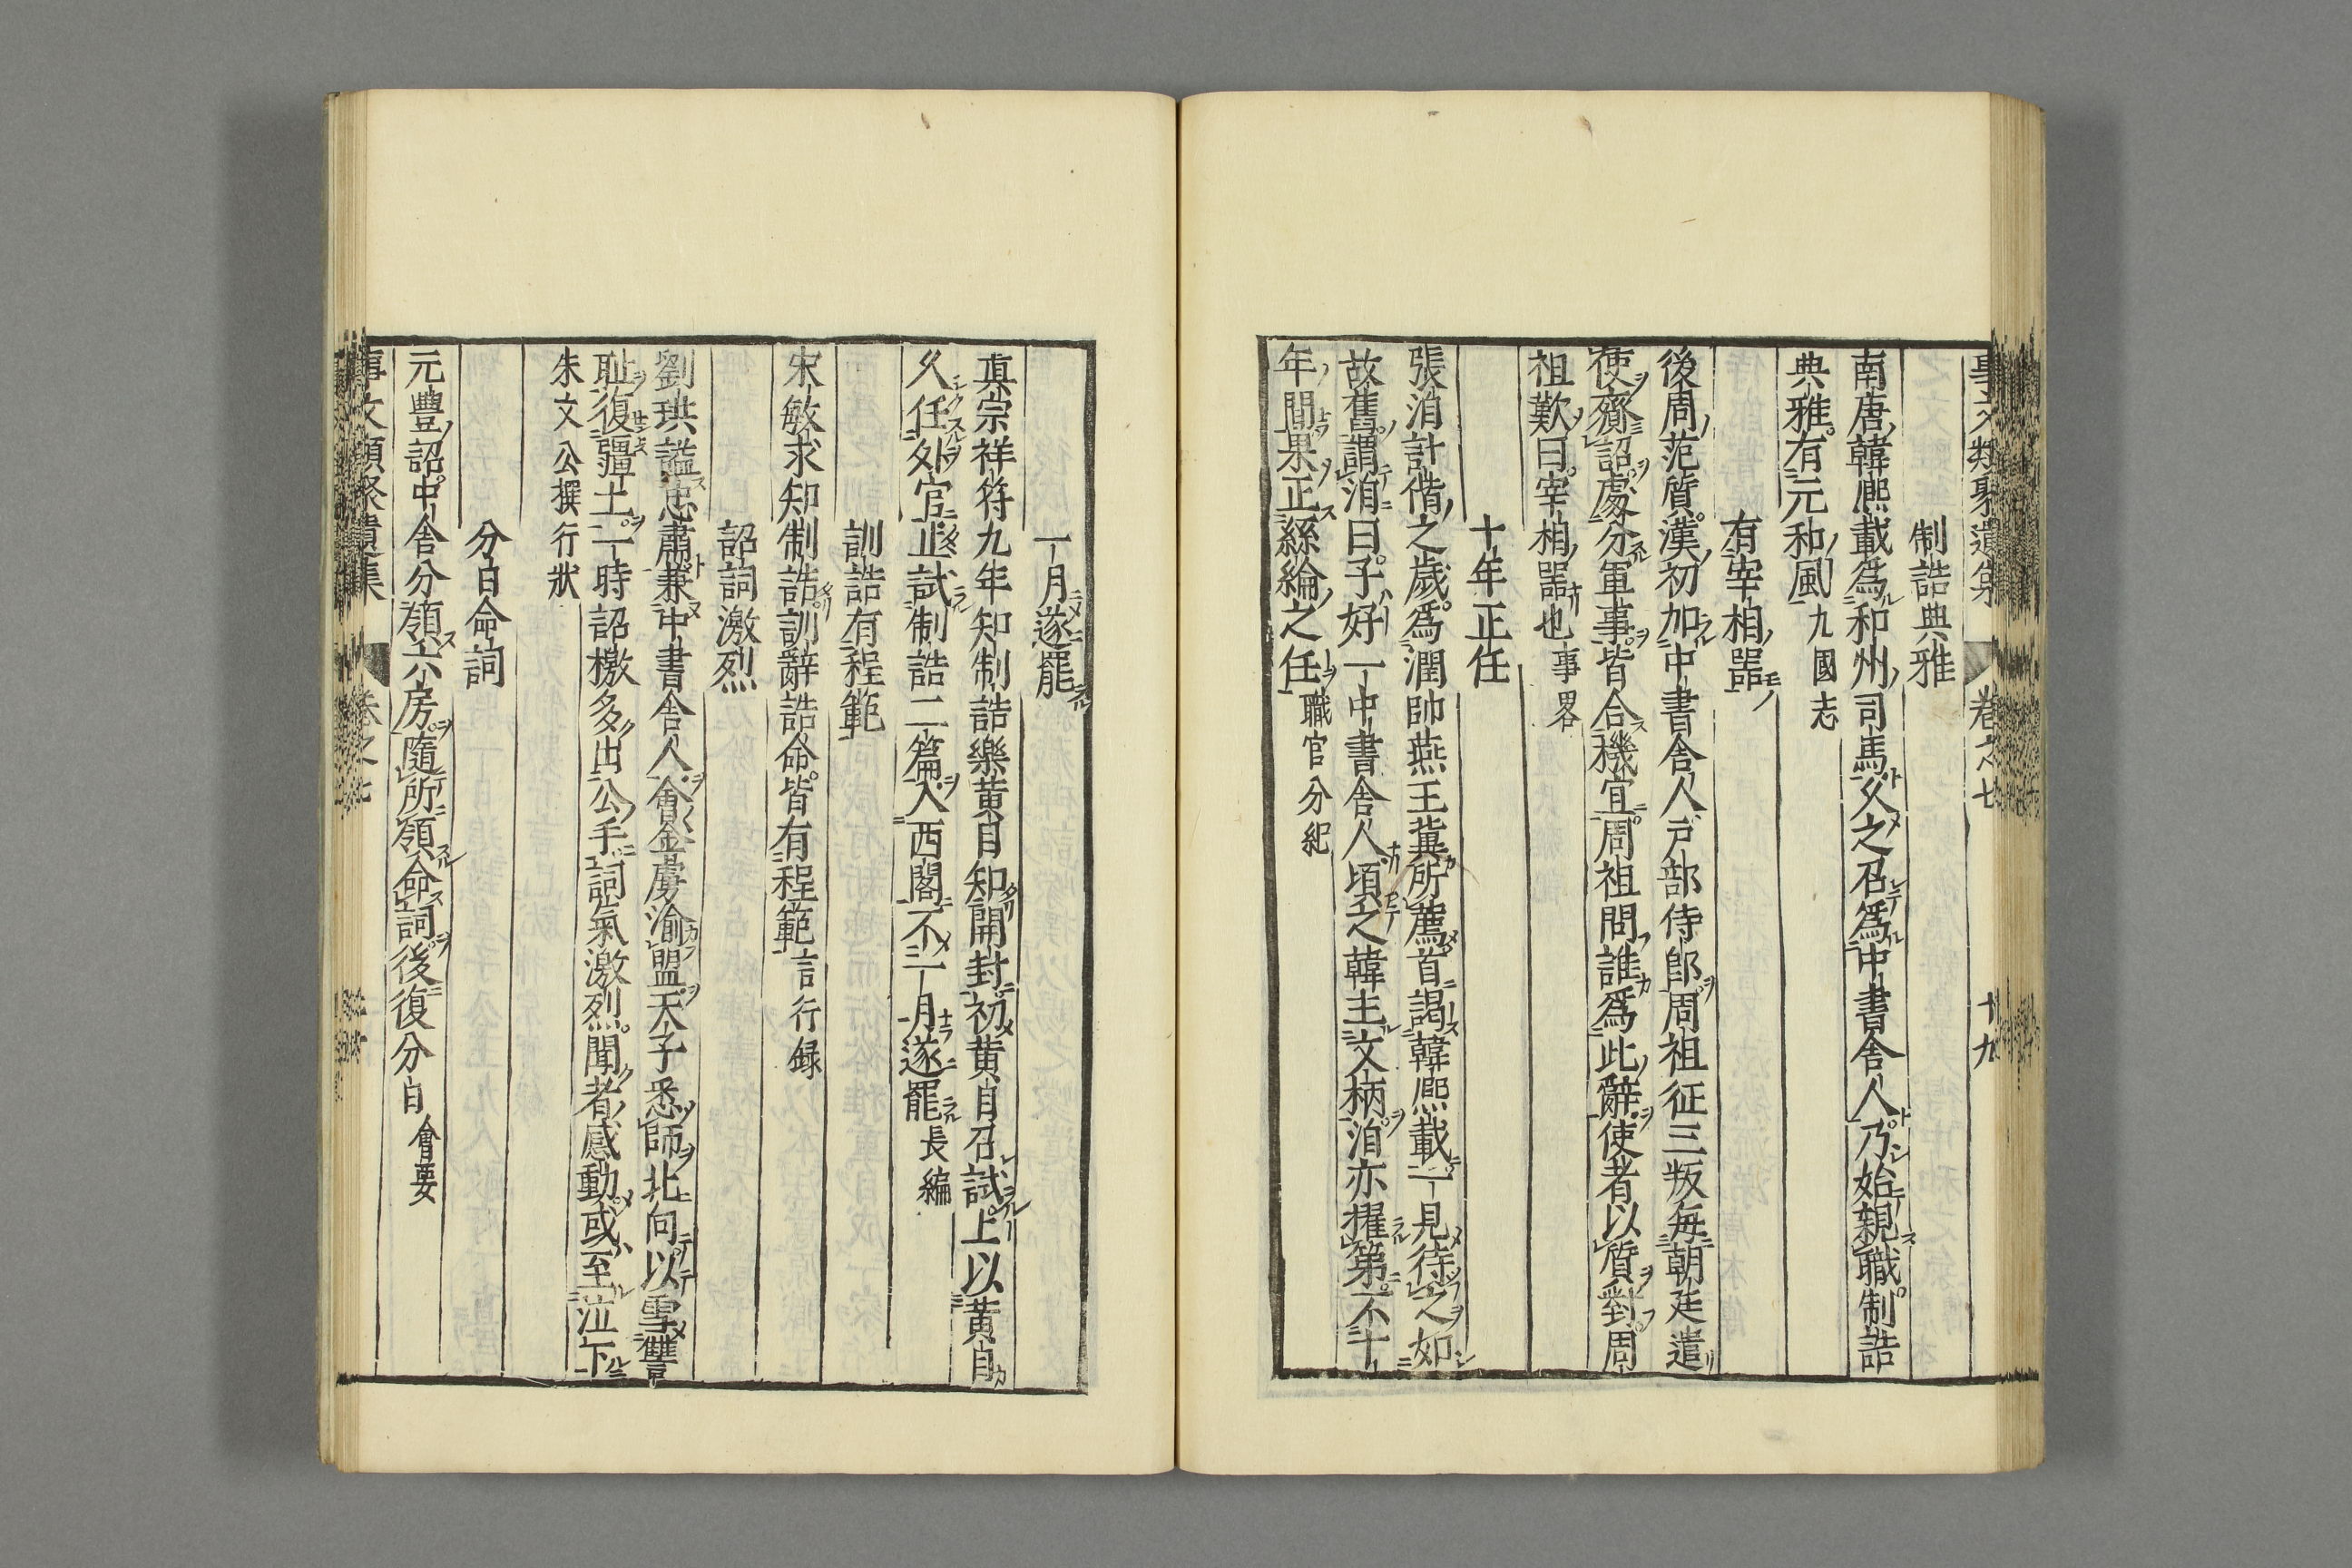 事文類聚遺集 卷之七 十九
制誥典雅
南唐韓熙載爲和州司馬久之召爲中書舍人乃始親職制誥
典雅有元和風 九國志
有宰相噐
後周范質漢初加中書舍人戸部侍郎周祖征三叛每朝廷遣
使齎詔處分軍事皆合機宜周祖問誰爲此辭使者以質對周
祖歎曰宰相噐也 事畧
十年正任
張洎計偕之歲爲潤帥燕王冀所薦首謁韓熙載一見待之如
故舊謂洎曰子好一中書舍人頃之韓主文柄洎亦擢第不十
年間果正絲綸之任 職官分紀
一月遂罷
真宗祥符九年知制誥樂黄目知開封初黄目召試上以黄目
久任外官止試制誥二篇入西閣不一月遂罷 長編
訓誥有程範
宋敏求知制誥訓辭誥命皆有程範 言行録
詔詞激烈
劉珙謚忠肅兼中書舍人會金虜渝盟天子悉師北向以雪讐
耻復疆土一時詔檄多出公手詞氣激烈聞者感動或至泣下
朱文公撰行狀
分白命詞
元豐詔中舍分領六房隨所領命詞後復分白 會要
事文類聚遺集 卷之七